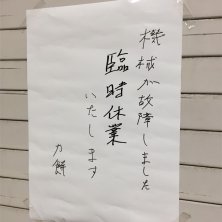 機械が故障しました
臨時休業
いたします
力餅